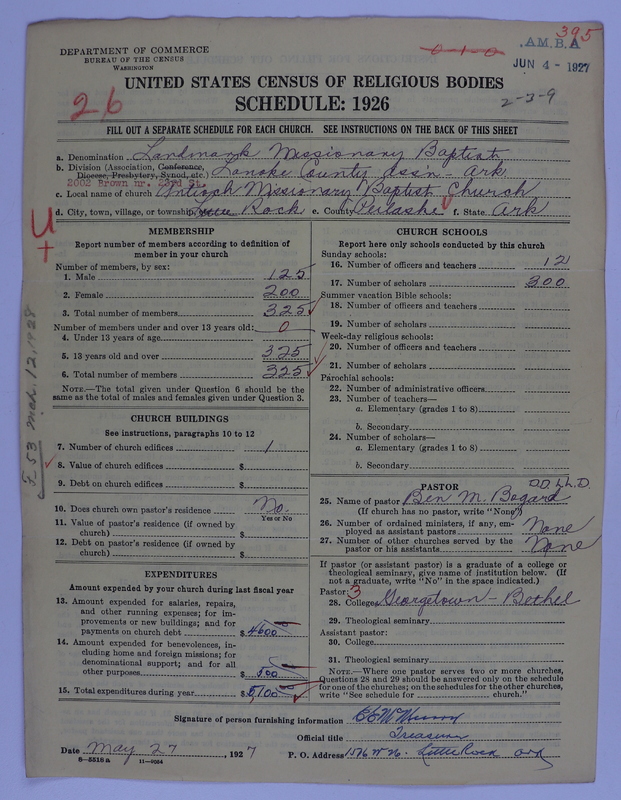 395
A.M.B.A
DEPARTMENT OF COMMERCE
BUREAU OF THE CENSUS
WASHINGTON
0-1-0
JUN 4 - 1927
UNITED STATES CENSUS OF RELIGIOUS BODIES
SCHEDULE: 1926
26
2-3-9
FILL OUT A SEPARATE SCHEDULE FOR EACH CHURCH. SEE INSTRUCTIONS ON THE BACK OF THIS SHEET
a. Denomination Landmark Missionary Baptist
b. Division (Association, Conference, Diocese, Presbytery, Synod, etc.) Lonoke County Ass'n - Ark
2002 Brown nr. 23rd St.
c. Local name of church Antioch Missionary Baptist Church
d. City, town, village, or township Little Rock e. County Pulaski f. State Ark
U
+
F 53 Mch. 12, 1928
MEMBERSHIP
Report number of members according to definition of
member in your church
Number of members, by sex:
1. Male 125
2. Female 200
3. Total number of members 325
Number of members under and over 13 years old:
4. Under 13 years of age 0
5. 13 years old and over 325
6. Total number of members 325
NOTE.—The total given under Question 6 should be
same as the total of males and females given under Question 3.
CHURCH BUILDINGS
See instructions, paragraphs 10 to 12
7. Number of church edifices 1
8. Value of church edifices $
9. Debt on church edifices $
10. Does church own pastor's residence No.
Yes or No
11. Value of pastor's residence (if owned by
church) $
12. Debt on pastor's residence (if owned by
church) $
EXPENDITURES
Amount expended by your church during last fiscal year
13. Amount expended for salaries, repairs,
and other running expenses; for im-
provements or new buildings; and for
payments on church debt $4600
14. Amount expended for benevolences, in-
cluding home and foreign missions; for
denominational support; and for all
other purposes $500
15. Total expenditures during year $5100
CHURCH SCHOOLS
Report here only schools conducted by this church
Sunday schools:
16. Number of officers and teachers 12
17. Number of scholars 300
Summer vacation Bible schools:
18. Number of officers and teachers
19. Number of scholars
Week-day religious schools:
20. Number of officers and teachers
21. Number of scholars
Parochial schools:
22. Number of administrative officers
23. Number of teachers—
a. Elementary (grades 1 to 8)
b. Secondary
24. Number of scholars—
a. Elementary (grades 1 to 8)
b. Secondary
PASTOR
25. Name of pastor Ben M. Bogard D.D. LL.D.
(If church has no pastor, write "None")
26. Number of ordained ministers, if any, em-
ployed as assistant pastors None
27. Number of other churches served by the
pastor or his assistants None
If pastor (or assistant pastor) is a graduate of a college or
theological seminary, give name of institution below. (If
not a graduate, write "No" in the space indicated.)
Pastor: 3
28. College Georgetown - Bethel
29. Theological seminary
Assistant pastor:
30. College
31. Theological seminary
NOTE.—Where one pastor serves two or more churches,
Questions 28 and 29 should be answered only on the schedule
for one of the churches; on the schedules for the other churches,
write "See schedule for church."
Signature of person furnishing information
Official title Treasurer
Date May 27, 1927 P. O. Address Little Rock Ark
8-5518a 11-9054